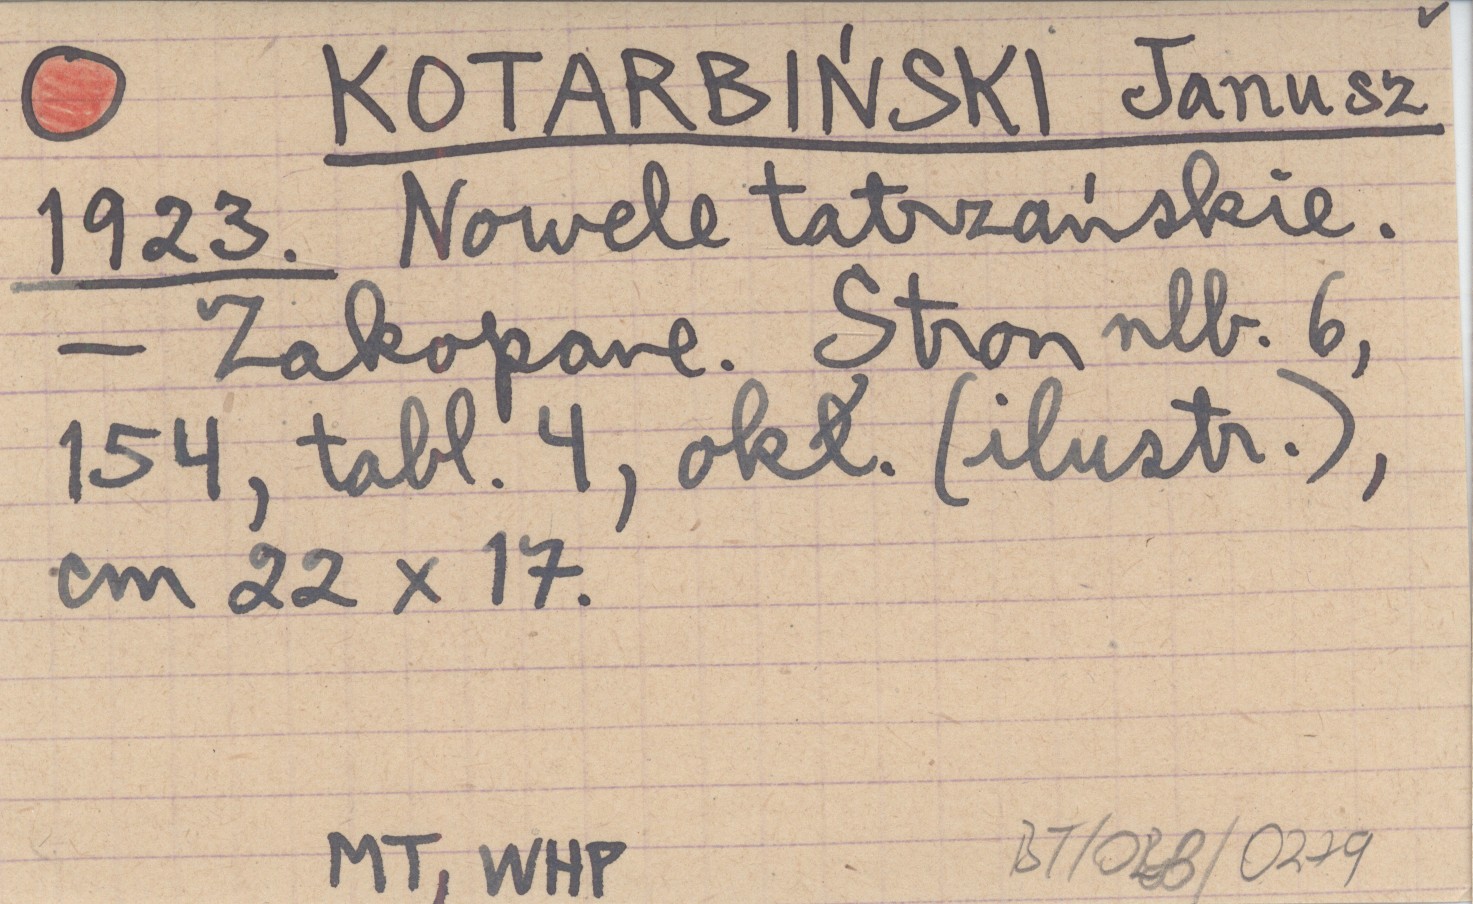 KOTARBIŃSKI Janusz
1923. Nowele tatrzańskie.
— Zakopane. Stron nlb. 6,
154, tabl. 4, okł. (ilustr.),
cm 22 x 17.
MT, WHP
0279